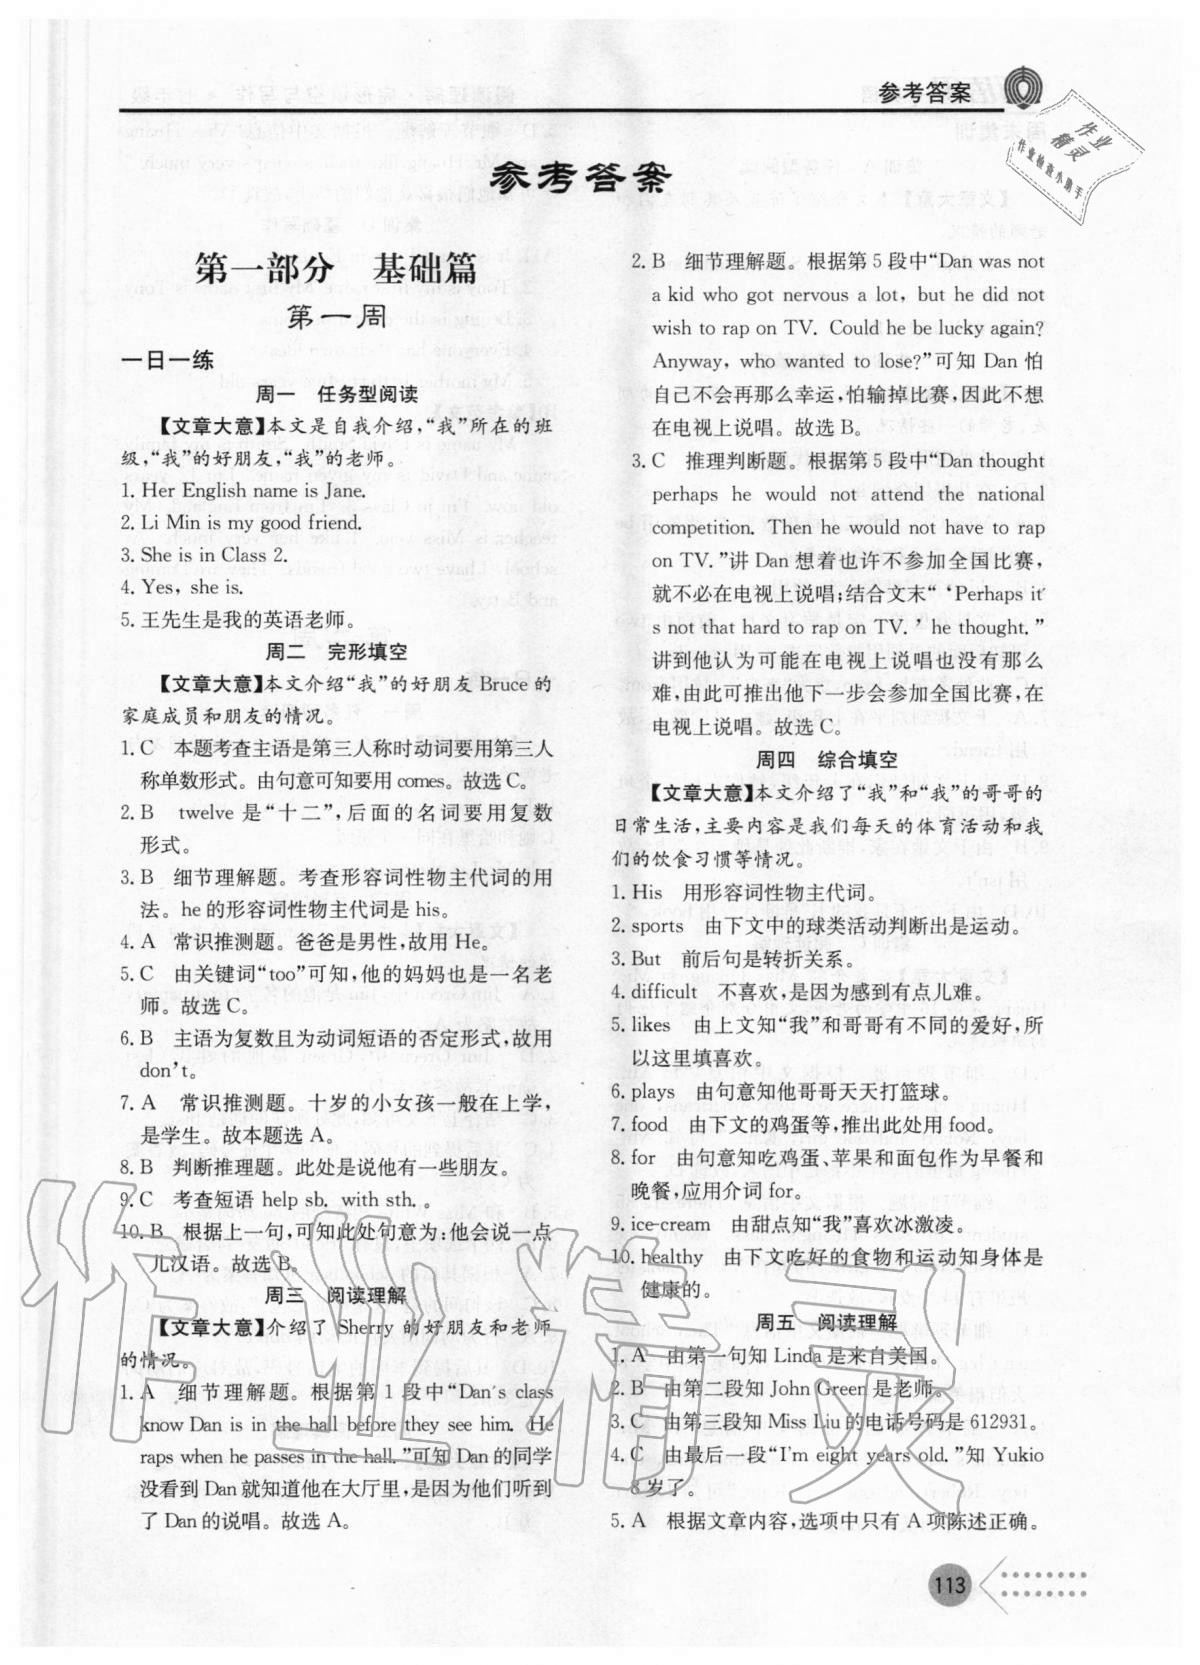 参考答案
作业
精灵
作业检查小助手
参考答案
第一部分　基础篇
第一周
一日一练
周一　任务型阅读
【文章大意】本文是自我介绍,“我”所在的班
级,“我”的好朋友,“我”的老师。
1. Her English name is Jane.
2. Li Min is my good friend.
3. She is in Class 2.
4. Yes, she is.
5. 王先生是我的英语老师。
周二　完形填空
【文章大意】本文介绍“我”的好朋友 Bruce 的
家庭成员和朋友的情况。
1. C　本题考查主语是第三人称时动词要用第三人
称单数形式。由句意可知要用 comes。故选 C。
2. B　twelve 是“十二”,后面的名词要用复数
形式。
3. B　细节理解题。考查形容词性物主代词的用
法。he 的形容词性物主代词是 his。
4. A　常识推测题。爸爸是男性,故用 He。
5. C　由关键词“too”可知,他的妈妈也是一名老
师。故选 C。
6. B　主语为复数且为动词短语的否定形式,故用
don't。
7. A　常识推测题。十岁的小女孩一般在上学,
是学生。故本题选 A。
8. B　判断推理题。此处是说他有一些朋友。
9. C　考查短语 help sb. with sth. 。
10. B　根据上一句,可知此处句意为:他会说一点
儿汉语。故选 B。
周三　阅读理解
【文章大意】介绍了 Sherry 的好朋友和老师
的情况。
1. A　细节理解题。根据第 1 段中“Dan's class
know Dan is in the hall before they see him. He
raps when he passes in the hall.”可知 Dan 的同学
没看到 Dan 就知道他在大厅里,是因为他们听到
了 Dan 的说唱。故选 A。
2. B　细节理解题。根据第 5 段中“Dan was not
a kid who got nervous a lot, but he did not
wish to rap on TV. Could he be lucky again?
Anyway, who wanted to lose?”可知 Dan 怕
自己不会再那么幸运,怕输掉比赛,因此不想
在电视上说唱。故选 B。
3. C　推理判断题。根据第 5 段中“Dan thought
perhaps he would not attend the national
competition. Then he would not have to rap
on TV.”讲 Dan 想着也许不参加全国比赛,
就不必在电视上说唱;结合文末“‘Perhaps it'
s not that hard to rap on TV.’ he thought.”
讲到他认为可能在电视上说唱也没有那么
难,由此可推出他下一步会参加全国比赛,在
电视上说唱。故选 C。
周四　综合填空
【文章大意】本文介绍了“我”和“我”的哥哥的
日常生活,主要内容是我们每天的体育活动和我
们的饮食习惯等情况。
1. His　用形容词性物主代词。
2. sports　由下文中的球类活动判断出是运动。
3. But　前后句是转折关系。
4. difficult　不喜欢,是因为感到有点儿难。
5. likes　由上文知“我”和哥哥有不同的爱好,所
以这里填喜欢。
6. plays　由句意知他哥哥天天打篮球。
7. food　由下文的鸡蛋等,推出此处用 food。
8. for　由句意知吃鸡蛋、苹果和面包作为早餐和
晚餐,应用介词 for。
9. ice-cream　由甜点知“我”喜欢冰激凌。
10. healthy　由下文吃好的食物和运动知身体是
健康的。
周五　阅读理解
1. A　由第一句知 Linda 是来自美国。
2. B　由第二段知 John Green 是老师。
3. C　由第三段知 Miss Liu 的电话号码是 612931。
4. C　由最后一段“I'm eight years old.”知 Yukio
8 岁了。
5. A　根据文章内容,选项中只有 A 项陈述正确。
作业精灵
113